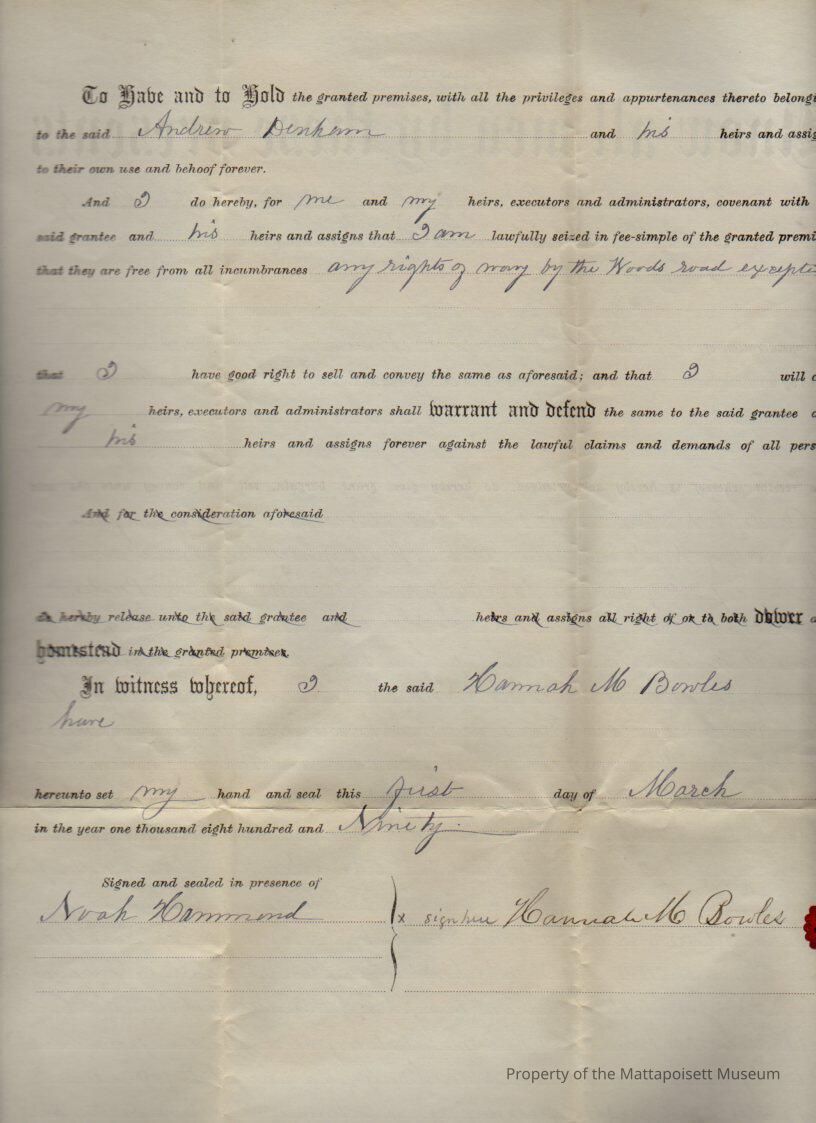 To Have and to Hold the granted premises, with all the privileges and appurtenances thereto belongi
to the said Andrew Denham and his heirs and assig
to their own use and behoof forever.
And I do hereby, for me and my heirs, executors and administrators, covenant with
said grantee and his heirs and assigns that I am lawfully seized in fee-simple of the granted premi
that they are free from all incumbrances any rights of way by the Woods road excepte
that I have good right to sell and convey the same as aforesaid; and that I will a
my heirs, executors and administrators shall warrant and defend the same to the said grantee a
his heirs and assigns forever against the lawful claims and demands of all pers
And for the consideration aforesaid
do hereby release unto the said grantee and heirs and assigns all right of or to both dower a
homestead in the granted premises.
In witness whereof, I the said Hannah M Bowles
have
hereunto set my hand and seal this first day of March
in the year one thousand eight hundred and Ninety.
Signed and sealed in presence of
Noah Hammond x sign here Hannah M Bowles
Property of the Mattapoisett Museum